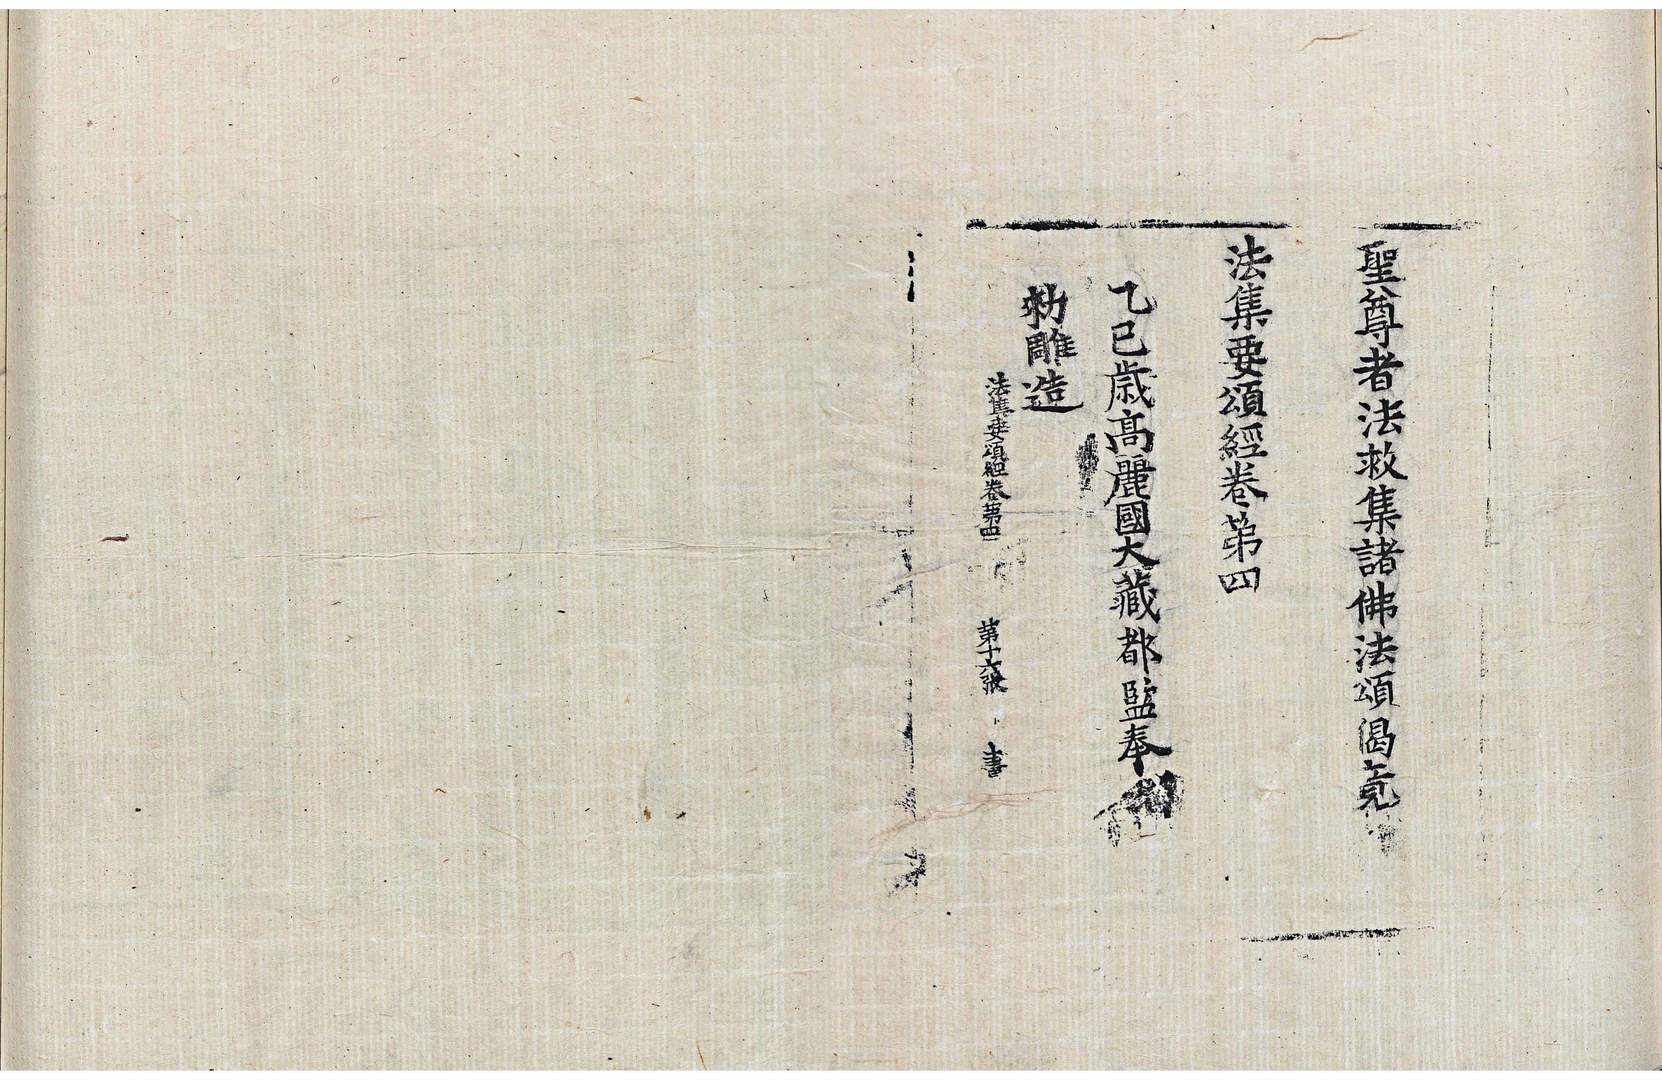 聖尊者法救集諸佛法頌偈竟
法集要頌經卷第四
乙巳歳高麗國大藏都監奉
勑雕造
法集要頌經卷第四 第十六張 書